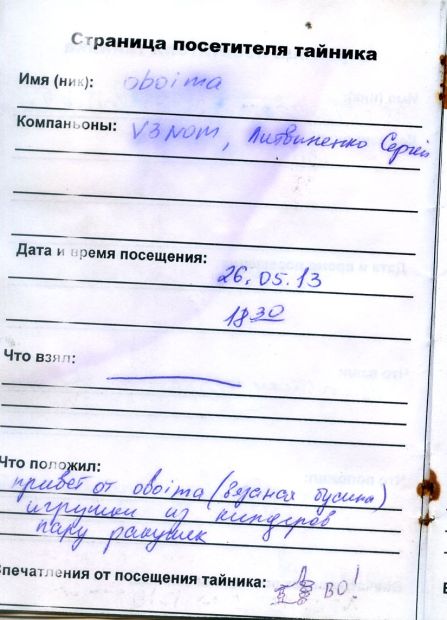 Страница посетителя тайника
Имя (ник): oboima
Компаньоны: V3NOM, Литвиненко Сергей
Дата и время посещения:
26.05.13
18 30
Что взял:
Что положил:
привет от oboima (вязаная бусина)
игрушки из киндеров
пару ракушек
Впечатления от посещения тайника: ВО!